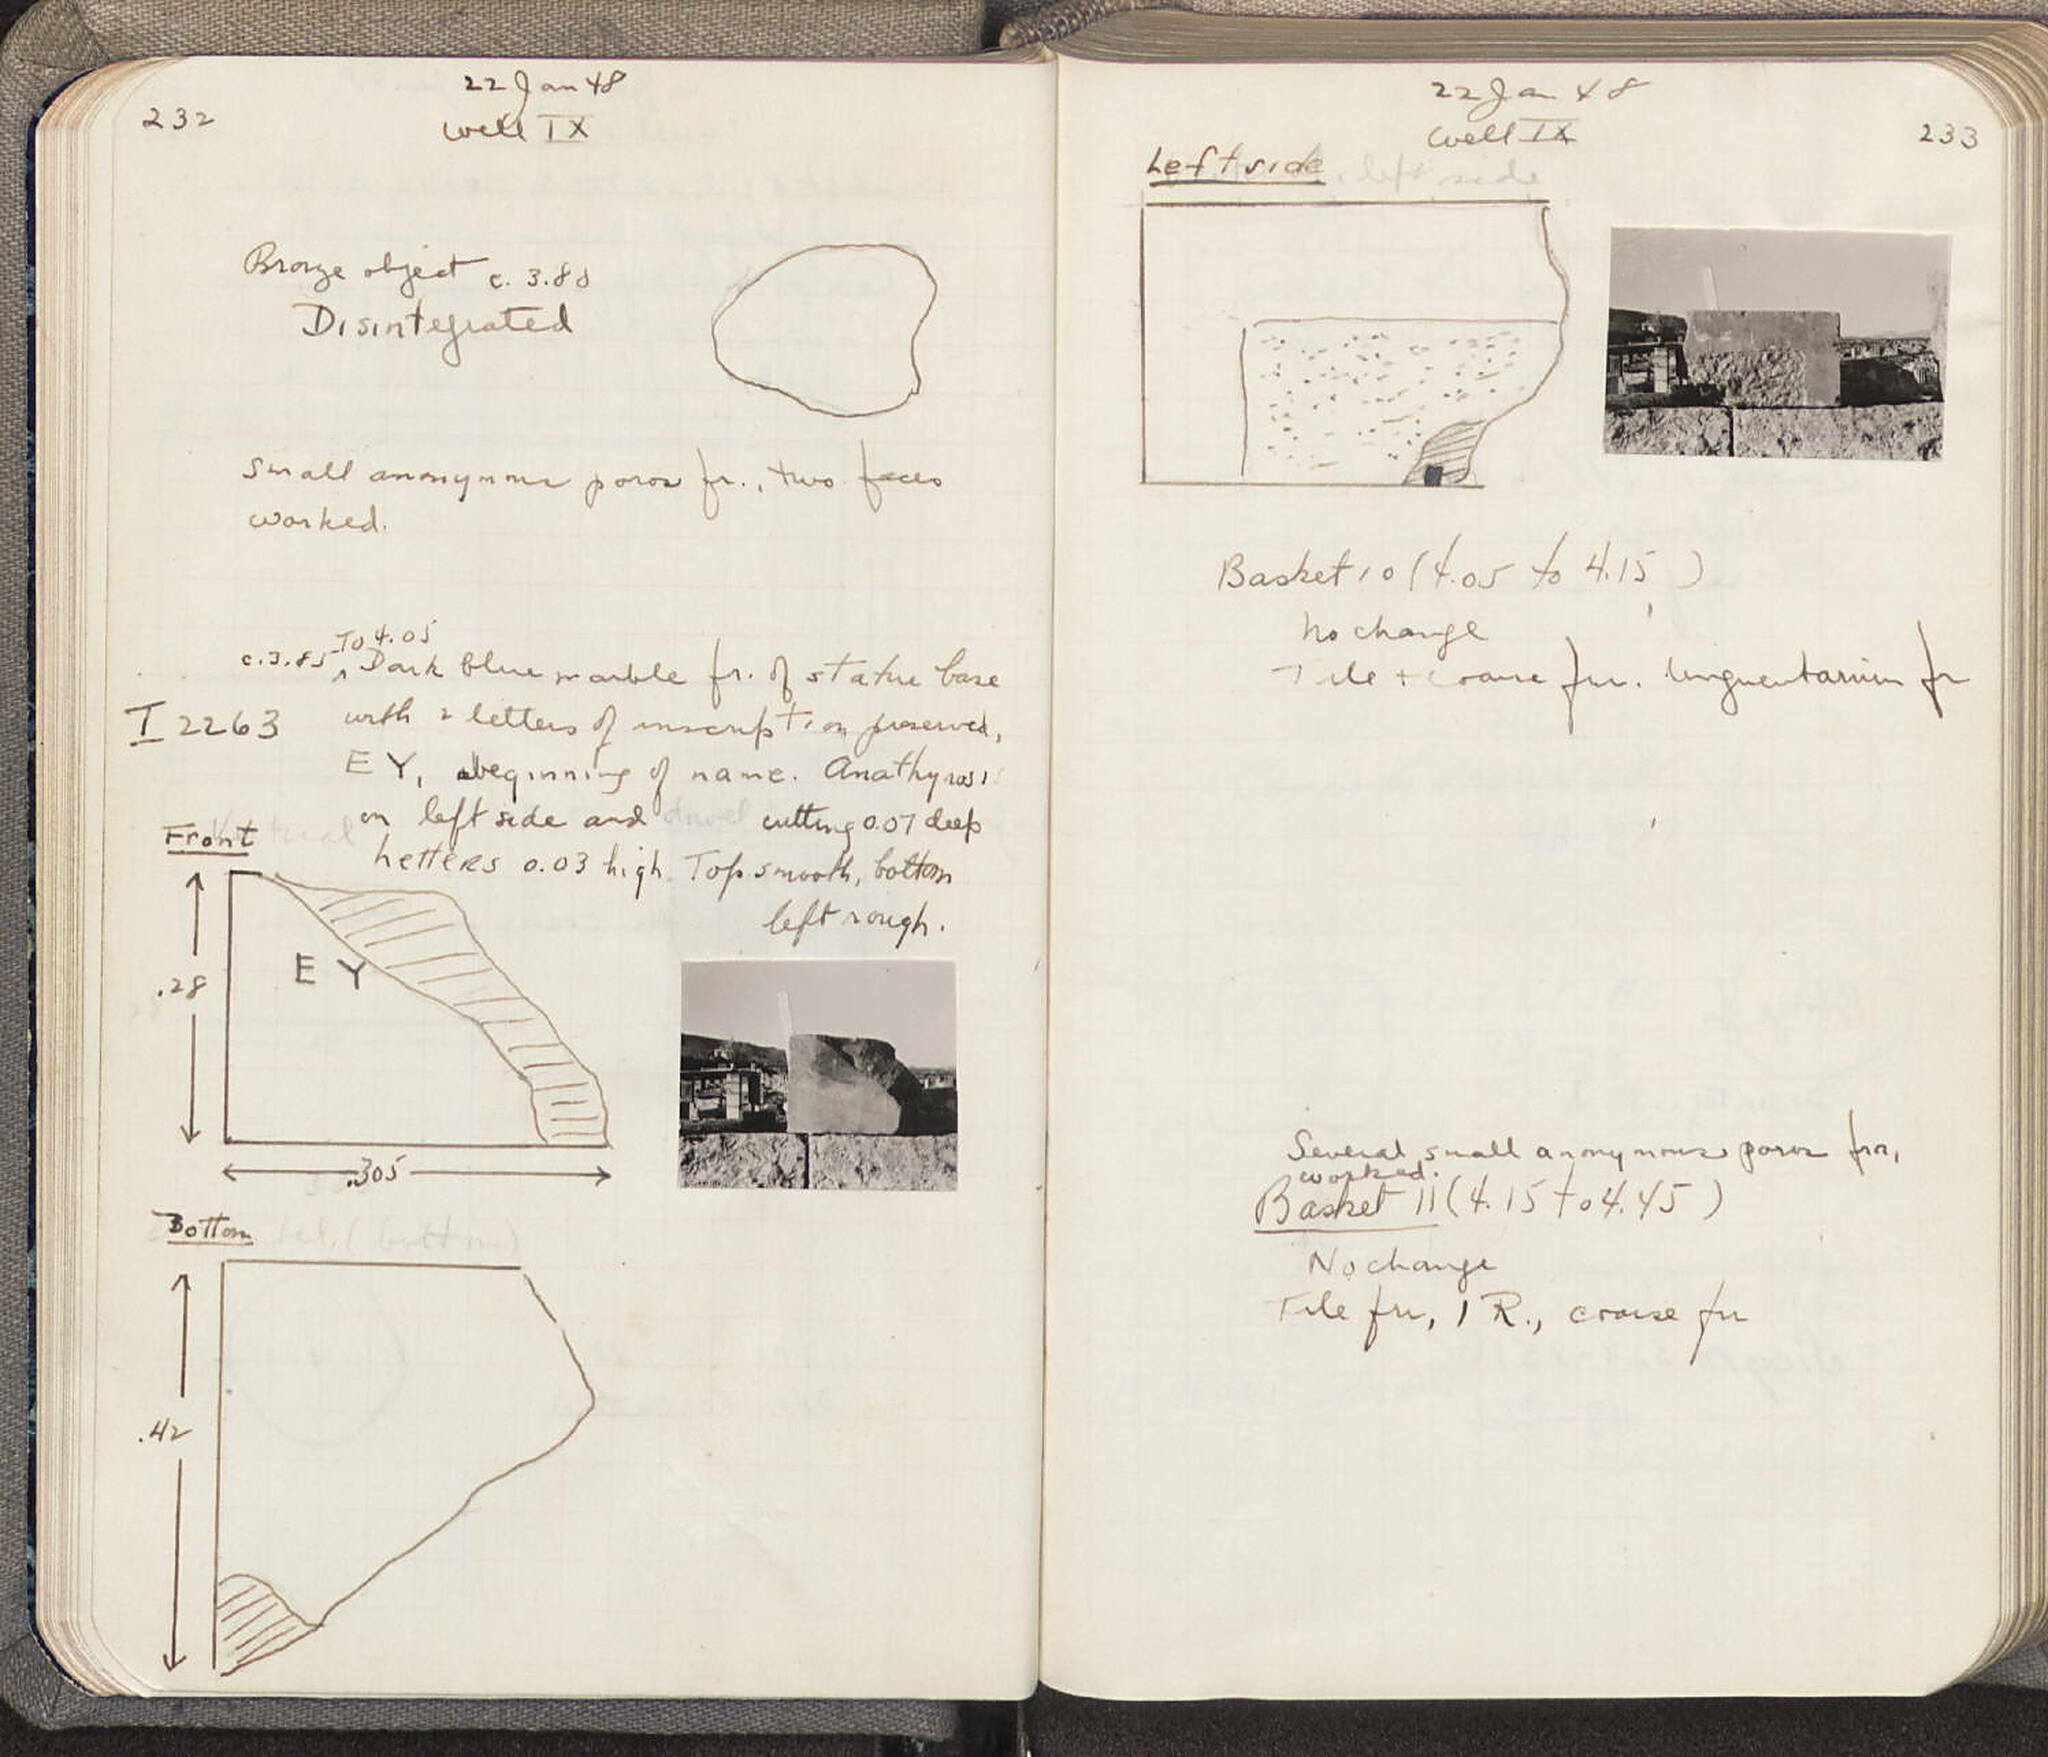 232
22 Jan 48
Well IX
Bronze object c. 3.80
Disintegrated
Small anonymous poros fr., two faces
worked.
To 4.05
c. 3.85 ^ Dark blue marble fr. of statue base
I 2263
with 2 letters of inscription preserved,
EY, beginning of name. Anathyrosis
on left side and dowel cutting 0.07 deep
Letters 0.03 high. Top smooth, bottom
left rough.
Front
E Y
.28
.305
Bottom
.42
22 Jan 48
Well IX
233
Left side
Basket 10 (4.05 to 4.15)
No change
Tile + coarse frr. Unguentarium fr
Several small anonymous poros frr,
worked.
Basket 11 (4.15 to 4.45)
No change
Tile frr, 1 R., coarse frr